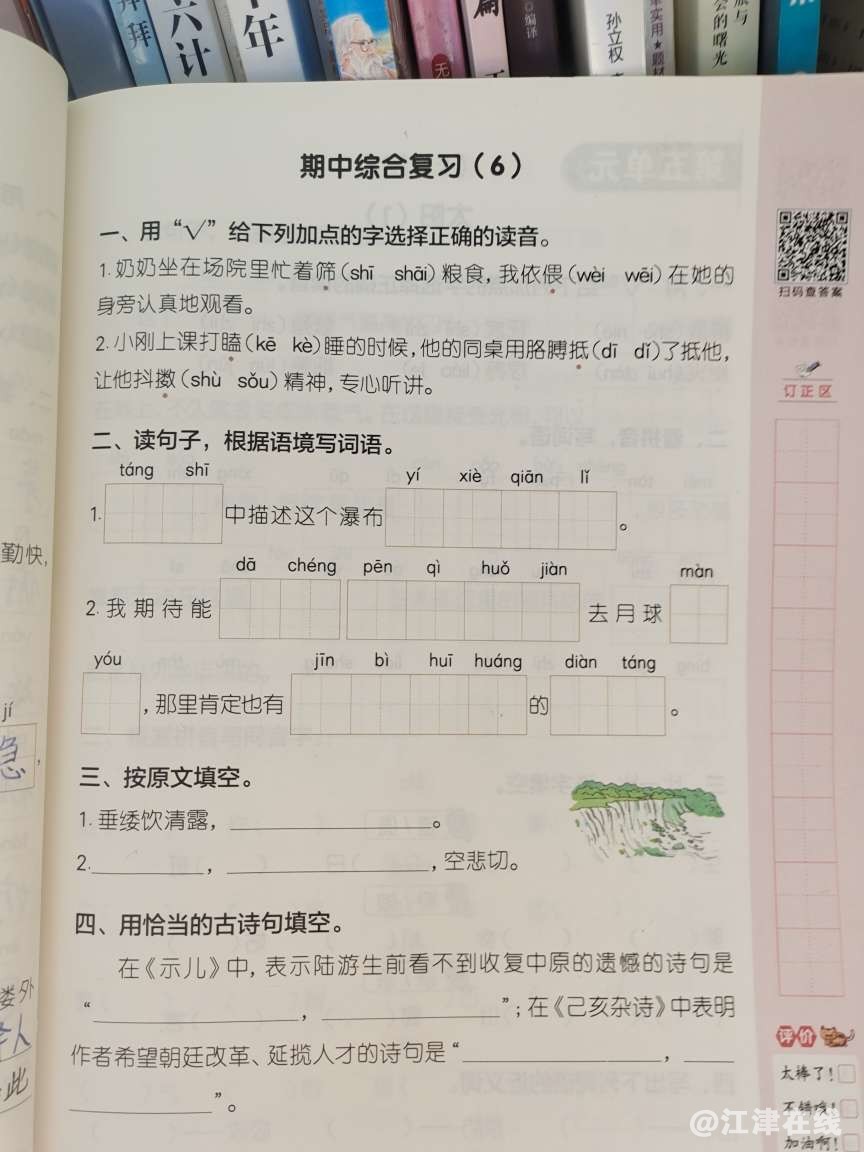 拜
六计
年
无
篇
编译
孙立权
实用★题材
旅与
公的曙光
期中综合复习(6)
一、用“√”给下列加点的字选择正确的读音。
1.奶奶坐在场院里忙着筛(shī shāi)粮食,我依偎(wèi wēi)在她的
身旁认真地观看。
2.小刚上课打瞌(kē kè)睡的时候,他的同桌用胳膊抵(dī dǐ)了抵他,
让他抖擞(shù sǒu)精神,专心听讲。
二、读句子,根据语境写词语。
táng shī
yí xiè qiān lǐ
1. 中描述这个瀑布 。
dā chéng pēn qì huǒ jiàn
màn
2.我期待能 去月球
yóu
jīn bì huī huáng diàn táng
,那里肯定也有 的 。
三、按原文填空。
1.垂緌饮清露,____。
2.____,____,空悲切。
四、用恰当的古诗句填空。
在《示儿》中,表示陆游生前看不到收复中原的遗憾的诗句是
“____,____”;在《己亥杂诗》中表明
作者希望朝廷改革、延揽人才的诗句是“____,____
____”。
扫码查答案
订正区
评价
太棒了!
不错哦!
加油啊!
勤快,
jí
急,
娄外
人
此
@江津在线